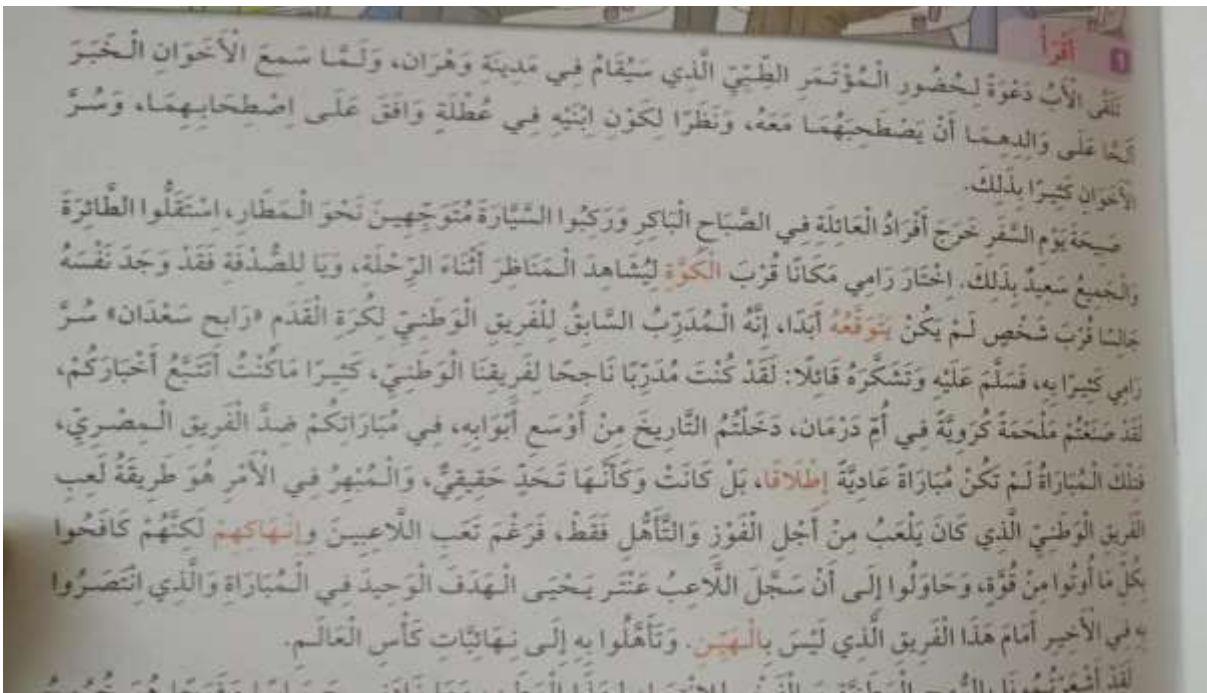 1 أَقْرَأُ
تَلَقَّى الْأَبُ دَعْوَةً لِحُضُورِ الْمُؤْتَمَرِ الطِّبِّيِّ الَّذِي سَيُقَامُ فِي مَدِينَةِ وَهْرَان، وَلَمَّا سَمِعَ الْأَخَوَانِ الْخَبَرَ
أَلَحَّا عَلَى وَالِدِهِمَا أَنْ يَصْطَحِبَهُمَا مَعَهُ، وَنَظَرًا لِكَوْنِ ابْنَيْهِ فِي عُطْلَةٍ وَافَقَ عَلَى اِصْطِحَابِهِمَا، وَسُرَّ
الْأَخَوَانِ كَثِيرًا بِذَلِكَ.
صَبِيحَةَ يَوْمِ السَّفَرِ خَرَجَ أَفْرَادُ الْعَائِلَةِ فِي الصَّبَاحِ الْبَاكِرِ وَرَكِبُوا السَّيَّارَةَ مُتَوَجِّهِينَ نَحْوَ الْمَطَارِ، اسْتَقَلُّوا الطَّائِرَةَ
وَالْجَمِيعُ سَعِيدٌ بِذَلِكَ. اِخْتَارَ رَامِي مَكَانًا قُرْبَ الْكُوَّةِ لِيُشَاهِدَ الْمَنَاظِرَ أَثْنَاءَ الرِّحْلَةِ، وَيَا لِلصُّدْفَةِ فَقَدْ وَجَدَ نَفْسَهُ
جَالِسًا قُرْبَ شَخْصٍ لَمْ يَكُنْ يَتَوَقَّعُهُ أَبَدًا، إِنَّهُ الْمُدَرِّبُ السَّابِقُ لِلْفَرِيقِ الْوَطَنِيِّ لِكُرَةِ الْقَدَمِ «رَابِح سَعْدَان» سُرَّ
رَامِي كَثِيرًا بِهِ، فَسَلَّمَ عَلَيْهِ وَتَشَكَّرَهُ قَائِلًا: لَقَدْ كُنْتَ مُدَرِّبًا نَاجِحًا لِفَرِيقِنَا الْوَطَنِيِّ، كَثِيرًا مَاكُنْتُ أَتَتَبَّعُ أَخْبَارَكُمْ،
لَقَدْ صَنَعْتُمْ مَلْحَمَةً كُرَوِيَّةً فِي أُمِّ دَرْمَان، دَخَلْتُمُ التَّارِيخَ مِنْ أَوْسَعِ أَبْوَابِهِ، فِي مُبَارَاتِكُمْ ضِدَّ الْفَرِيقِ الْمِصْرِيِّ،
فَتِلْكَ الْمُبَارَاةُ لَمْ تَكُنْ مُبَارَاةً عَادِيَّةً إِطْلَاقًا، بَلْ كَانَتْ وَكَأَنَّهَا تَحَدٍّ حَقِيقِيٌّ، وَالْمُبْهِرُ فِي الْأَمْرِ هُوَ طَرِيقَةُ لَعِبِ
الْفَرِيقِ الْوَطَنِيِّ الَّذِي كَانَ يَلْعَبُ مِنْ أَجْلِ الْفَوْزِ وَالتَّأَهُّلِ فَقَطْ، فَرَغْمَ تَعَبِ اللَّاعِبِينَ وإِنْهَاكِهِمْ لَكِنَّهُمْ كَافَحُوا
بِكُلِّ مَا أُوتُوا مِنْ قُوَّةٍ، وَحَاوَلُوا إِلَى أَنْ سَجَّلَ اللَّاعِبُ عَنْتَر يَحْيَى الْهَدَفَ الْوَحِيدَ فِي الْمُبَارَاةِ وَالَّذِي انْتَصَرُوا
بِهِ فِي الْأَخِيرِ أَمَامَ هَذَا الْفَرِيقِ الَّذِي لَيْسَ بِالْهَيِّنِ. وَتَأَهَّلُوا بِهِ إِلَى نِهَائِيَّاتِ كَأْسِ الْعَالَمِ.
لَقَدْ أَشْعَرْتُمُونَا بِالرُّوحِ الْوَطَنِيَّةِ